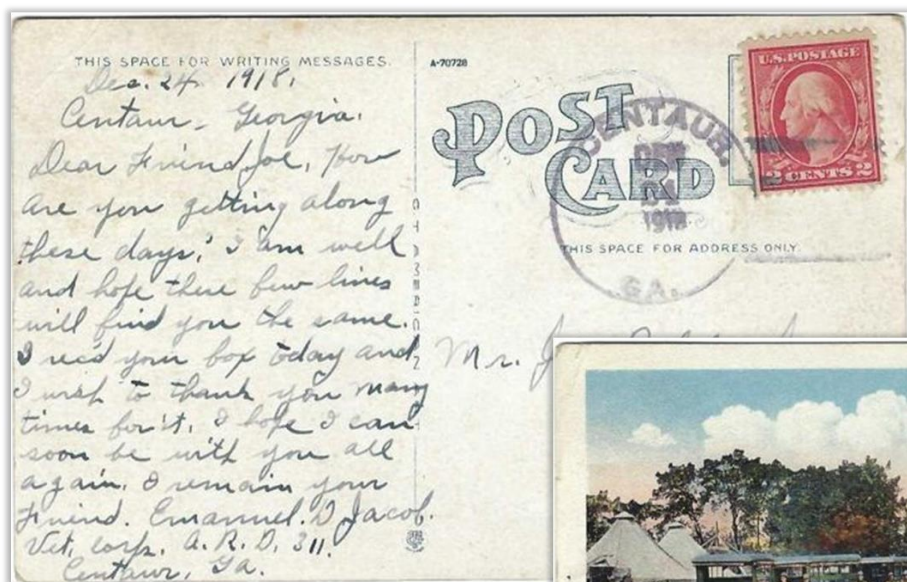 THIS SPACE FOR WRITING MESSAGES.
Dec. 24. 1918.
Centaur, Georgia.
Dear Friend Joe, How
are you getting along
these days, I am well
and hope these few lines
will find you the same.
I rec'd your box today and
I wish to thank you many
times for it. I hope I can
soon be with you all
again. I remain your
Friend. Emanuel. D. Jacob.
Vet. Corps. A. R. D. 311.
Centaur, Ga.
A-70728
POST
CARD
THIS SPACE FOR ADDRESS ONLY.
CENTAUR.
DEC
GA.
U.S. POSTAGE
2 CENTS 2
Mr.